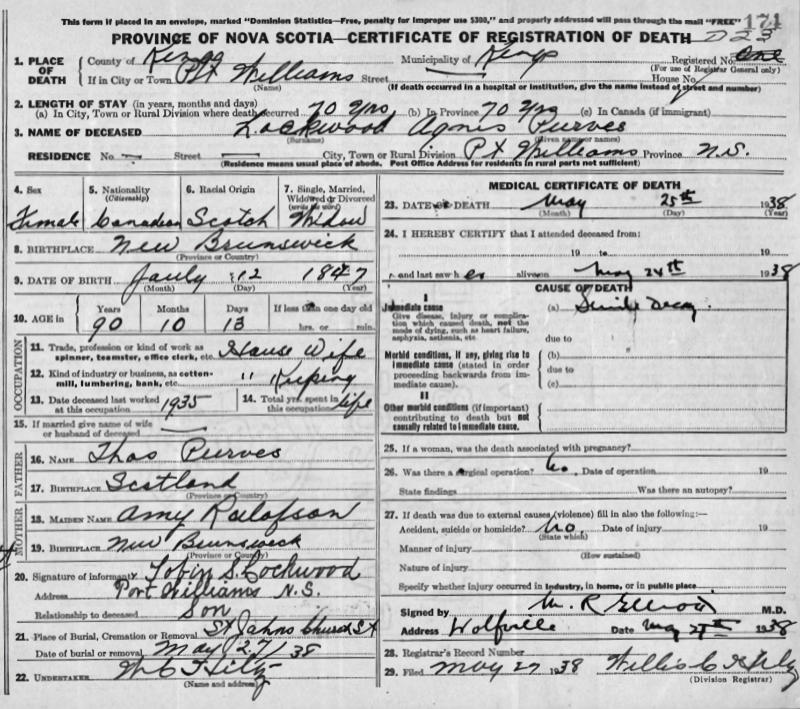 This form if placed in an envelope, marked "Dominion Statistics—Free, penalty for improper use $300," and properly addressed will pass through the mail "FREE" 171
PROVINCE OF NOVA SCOTIA—CERTIFICATE OF REGISTRATION OF DEATH
1. PLACE OF DEATH County of Kings Municipality of Kings Registered No. One
(For use of Registrar General only)
If in City or Town Pt Williams Street House No.
(Name) (If death occurred in a hospital or institution, give the name instead of street and number)
2. LENGTH OF STAY (in years, months and days)
(a) In City, Town or Rural Division where death occurred 70 yrs (b) In Province 70 yrs (c) In Canada (if immigrant)
3. NAME OF DECEASED Lockwood Agnes Purves
(Surname) (Given name or names)
RESIDENCE No. — Street — City, Town or Rural Division Pt Williams Province N.S.
(Residence means usual place of abode. Post Office Address for residents in rural parts not sufficient)
4. Sex Female
5. Nationality (Citizenship) Canadian
6. Racial Origin Scotch
7. Single, Married, Widowed or Divorced (write the word) Widow
8. BIRTHPLACE New Brunswick
(Province or Country)
9. DATE OF BIRTH July 12 1847
(Month) (Day) (Year)
10. AGE in Years Months Days If less than one day old
90 10 13 hrs. or min.
OCCUPATION
11. Trade, profession or kind of work as spinner, teamster, office clerk, etc. House Wife
12. Kind of industry or business, as cotton-mill, lumbering, bank, etc. " Keeping
13. Date deceased last worked at this occupation 1935
14. Total yrs. spent in this occupation life
15. If married give name of wife or husband of deceased —
FATHER
16. NAME Thos Purves
17. BIRTHPLACE Scotland
(Province or Country)
MOTHER
18. MAIDEN NAME Amy
19. BIRTHPLACE New Brunswick
(Province or Country)
20. Signature of informant Tobin S. Lockwood
Address Port Williams N.S.
Relationship to deceased Son
21. Place of Burial, Cremation or Removal St Johns Church St
Date of burial or removal May 27/38
22. UNDERTAKER
(Name and address)
MEDICAL CERTIFICATE OF DEATH
23. DATE OF DEATH May 25th 1938
(Month) (Day) (Year)
24. I HEREBY CERTIFY that I attended deceased from:
19 to 19
and last saw her alive on May 24th 1938
CAUSE OF DEATH
I
Immediate cause
Give disease, injury or complication which caused death, not the mode of dying, such as heart failure, asphyxia, asthenia, etc.
(a) Senile Decay
due to
Morbid conditions, if any, giving rise to immediate cause (stated in order proceeding backwards from immediate cause).
(b)
due to
(c)
II
Other morbid conditions (if important) contributing to death but not causally related to immediate cause.
25. If a woman, was the death associated with pregnancy?
26. Was there a surgical operation? No. Date of operation 19
State findings Was there an autopsy?
27. If death was due to external causes (violence) fill in also the following:—
Accident, suicide or homicide? No. Date of injury 19
(State which)
Manner of injury
(How sustained)
Nature of injury
Specify whether injury occurred in industry, in home, or in public place
Signed by M.D.
Address Wolfville Date May 1938
28. Registrar's Record Number
29. Filed May 27 1938
(Division Registrar)